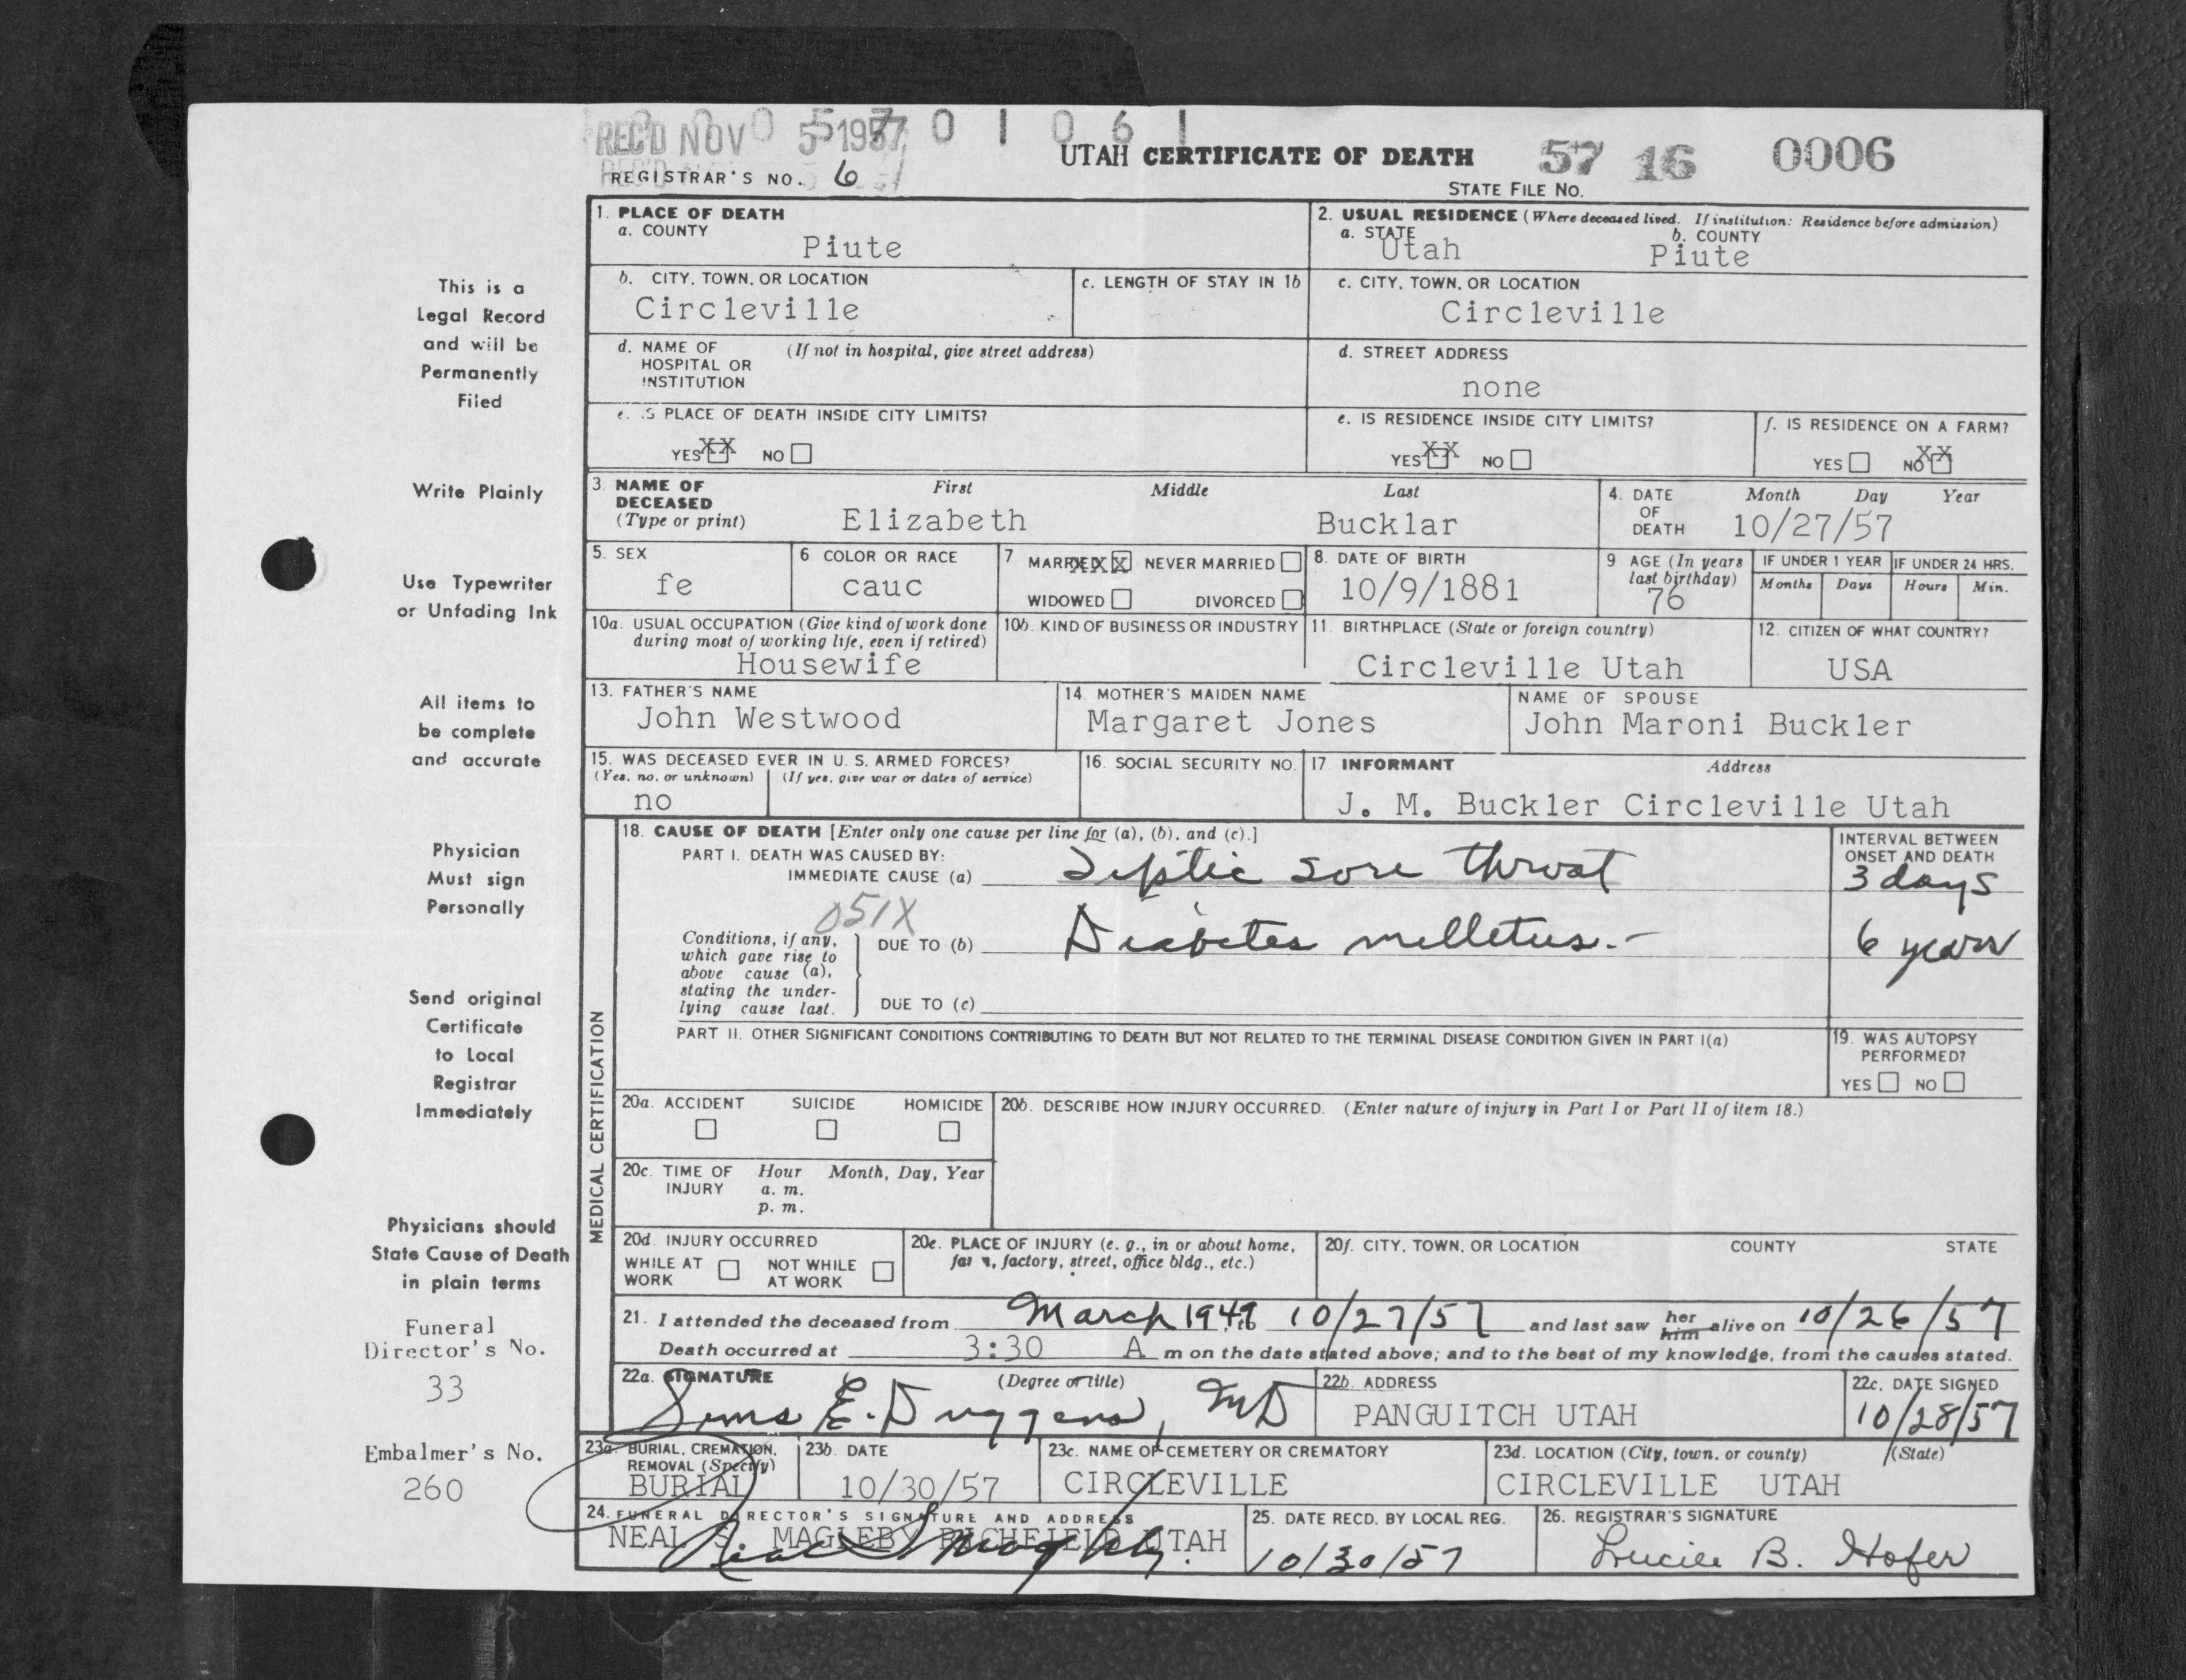 REC'D NOV 5 1957 0 1 0 6 1
UTAH CERTIFICATE OF DEATH 57 16 0006
REGISTRAR'S NO. 6
STATE FILE NO.
1. PLACE OF DEATH
a. COUNTY
Piute
2. USUAL RESIDENCE (Where deceased lived. If institution: Residence before admission)
a. STATE b. COUNTY
Utah Piute
b. CITY, TOWN, OR LOCATION
Circleville
c. LENGTH OF STAY IN 1b
c. CITY, TOWN, OR LOCATION
Circleville
d. NAME OF (If not in hospital, give street address)
HOSPITAL OR
INSTITUTION
d. STREET ADDRESS
none
e. IS PLACE OF DEATH INSIDE CITY LIMITS?
YES XX NO
e. IS RESIDENCE INSIDE CITY LIMITS?
YES XX NO
f. IS RESIDENCE ON A FARM?
YES NO XX
3. NAME OF First Middle Last
DECEASED
(Type or print) Elizabeth Bucklar
4. DATE Month Day Year
OF
DEATH 10/27/57
5. SEX
fe
6 COLOR OR RACE
cauc
7 MARRIED XXX NEVER MARRIED
WIDOWED DIVORCED
8. DATE OF BIRTH
10/9/1881
9 AGE (In years
last birthday)
76
IF UNDER 1 YEAR IF UNDER 24 HRS.
Months Days Hours Min.
10a. USUAL OCCUPATION (Give kind of work done
during most of working life, even if retired)
Housewife
10b. KIND OF BUSINESS OR INDUSTRY
11. BIRTHPLACE (State or foreign country)
Circleville Utah
12. CITIZEN OF WHAT COUNTRY?
USA
13. FATHER'S NAME
John Westwood
14. MOTHER'S MAIDEN NAME
Margaret Jones
NAME OF SPOUSE
John Maroni Buckler
15. WAS DECEASED EVER IN U. S. ARMED FORCES?
(Yes, no, or unknown) (If yes, give war or dates of service)
no
16. SOCIAL SECURITY NO.
17. INFORMANT Address
J. M. Buckler Circleville Utah
MEDICAL CERTIFICATION
18. CAUSE OF DEATH [Enter only one cause per line for (a), (b), and (c).]
PART I. DEATH WAS CAUSED BY:
IMMEDIATE CAUSE (a) Septic sore throat
INTERVAL BETWEEN
ONSET AND DEATH
3 days
051X
Conditions, if any,
which gave rise to
above cause (a),
stating the under-
lying cause last.
DUE TO (b) Diabetes melletus.- 6 years
DUE TO (c)
PART II. OTHER SIGNIFICANT CONDITIONS CONTRIBUTING TO DEATH BUT NOT RELATED TO THE TERMINAL DISEASE CONDITION GIVEN IN PART I(a)
19. WAS AUTOPSY
PERFORMED?
YES NO
20a. ACCIDENT SUICIDE HOMICIDE
20b. DESCRIBE HOW INJURY OCCURRED. (Enter nature of injury in Part I or Part II of item 18.)
20c. TIME OF Hour Month, Day, Year
INJURY a. m.
p. m.
20d. INJURY OCCURRED
WHILE AT NOT WHILE
WORK AT WORK
20e. PLACE OF INJURY (e. g., in or about home,
farm, factory, street, office bldg., etc.)
20f. CITY, TOWN, OR LOCATION COUNTY STATE
21. I attended the deceased from March 1949 to 10/27/57 and last saw her him alive on 10/26/57
Death occurred at 3:30 A m on the date stated above; and to the best of my knowledge, from the causes stated.
22a. SIGNATURE (Degree or title)
Sims E. Duggens, MD
22b. ADDRESS
PANGUITCH UTAH
22c. DATE SIGNED
10/28/57
23a. BURIAL, CREMATION,
REMOVAL (Specify)
BURIAL
23b. DATE
10/30/57
23c. NAME OF CEMETERY OR CREMATORY
CIRCLEVILLE
23d. LOCATION (City, town, or county) (State)
CIRCLEVILLE UTAH
24. FUNERAL DIRECTOR'S SIGNATURE AND ADDRESS
NEAL S. MAGLEBY RICHFIELD UTAH
Neal S Magleby.
25. DATE RECD. BY LOCAL REG.
10/30/57
26. REGISTRAR'S SIGNATURE
Lucile B. Hofer
This is a
Legal Record
and will be
Permanently
Filed
Write Plainly
Use Typewriter
or Unfading Ink
All items to
be complete
and accurate
Physician
Must sign
Personally
Send original
Certificate
to Local
Registrar
Immediately
Physicians should
State Cause of Death
in plain terms
Funeral
Director's No.
33
Embalmer's No.
260